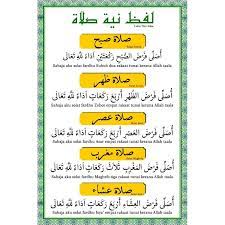 لفظ نية صلاة
صلاة صبح
أُصَلِّى فَرْضَ الصُّبْحِ رَكْعَتَيْنِ أَدَاءً لِلَّهِ تَعَالَى
Sahaja aku solat fardhu Subuh dua rakaat tunai kerana Allah taala
صلاة ظهر
أُصَلِّى فَرْضَ الظُّهْرِ أَرْبَعَ رَكَعَاتٍ أَدَاءً لِلَّهِ تَعَالَى
Sahaja aku solat fardhu Zohor empat rakaat tunai kerana Allah taala
صلاة عصر
أُصَلِّى فَرْضَ العَصْرِ أَرْبَعَ رَكَعَاتٍ أَدَاءً لِلَّهِ تَعَالَى
Sahaja aku solat fardhu Asar empat rakaat tunai kerana Allah taala
صلاة مغرب
أُصَلِّى فَرْضَ المَغْرِبِ ثَلَاثَ رَكَعَاتٍ أَدَاءً لِلَّهِ تَعَالَى
Sahaja aku solat fardhu Maghrib tiga rakaat tunai kerana Allah taala
صلاة عشاء
أُصَلِّى فَرْضَ العِشَاءِ أَرْبَعَ رَكَعَاتٍ أَدَاءً لِلَّهِ تَعَالَى
Sahaja aku solat fardhu empat rakaat tunai kerana Allah taala